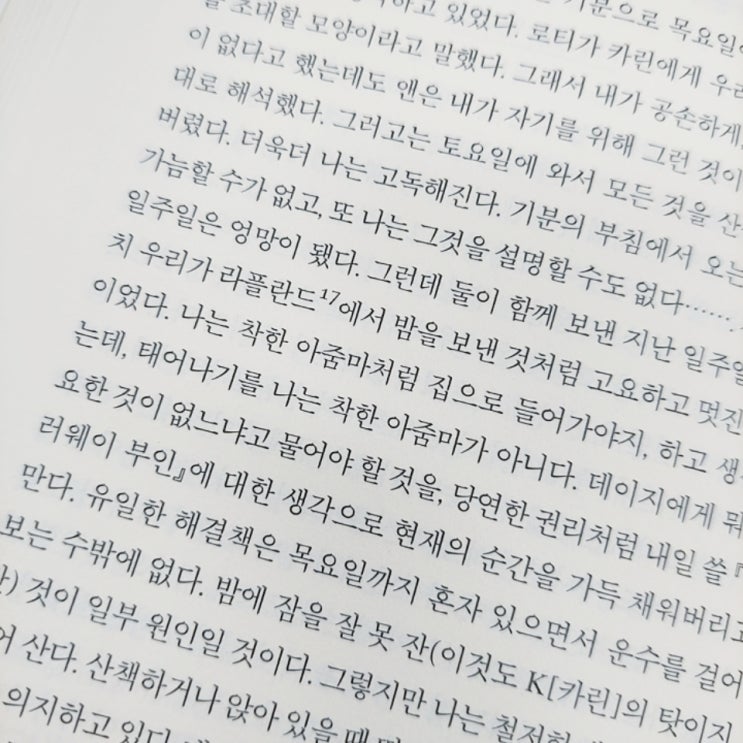 하고 있었다. 로티가 카린에게 우리
초대할 모양이라고 말했다. 그래서 내가 공손하게,
이 없다고 했는데도 앤은 내가 자기를 위해 그런 것이
대로 해석했다. 그러고는 토요일에 와서 모든 것을 산
버렸다. 더욱더 나는 고독해진다. 기분의 부침에서 오는
가늠할 수가 없고, 또 나는 그것을 설명할 수도 없다……
일주일은 엉망이 됐다. 그런데 둘이 함께 보낸 지난 일주일
치 우리가 라플란드17에서 밤을 보낸 것처럼 고요하고 멋진
이었다. 나는 착한 아줌마처럼 집으로 들어가야지, 하고 생
는데, 태어나기를 나는 착한 아줌마가 아니다. 데이지에게 뭐
요한 것이 없느냐고 물어야 할 것을, 당연한 권리처럼 내일 쓸 『
러웨이 부인』에 대한 생각으로 현재의 순간을 가득 채워버리고
만다. 유일한 해결책은 목요일까지 혼자 있으면서 운수를 걸어
보는 수밖에 없다. 밤에 잠을 잘 못 잔(이것도 K[카린]의 탓이지
것이 일부 원인일 것이다. 그렇지만 나는 철저한
산다. 산책하거나 앉아 있을 때
의지하고 있다.